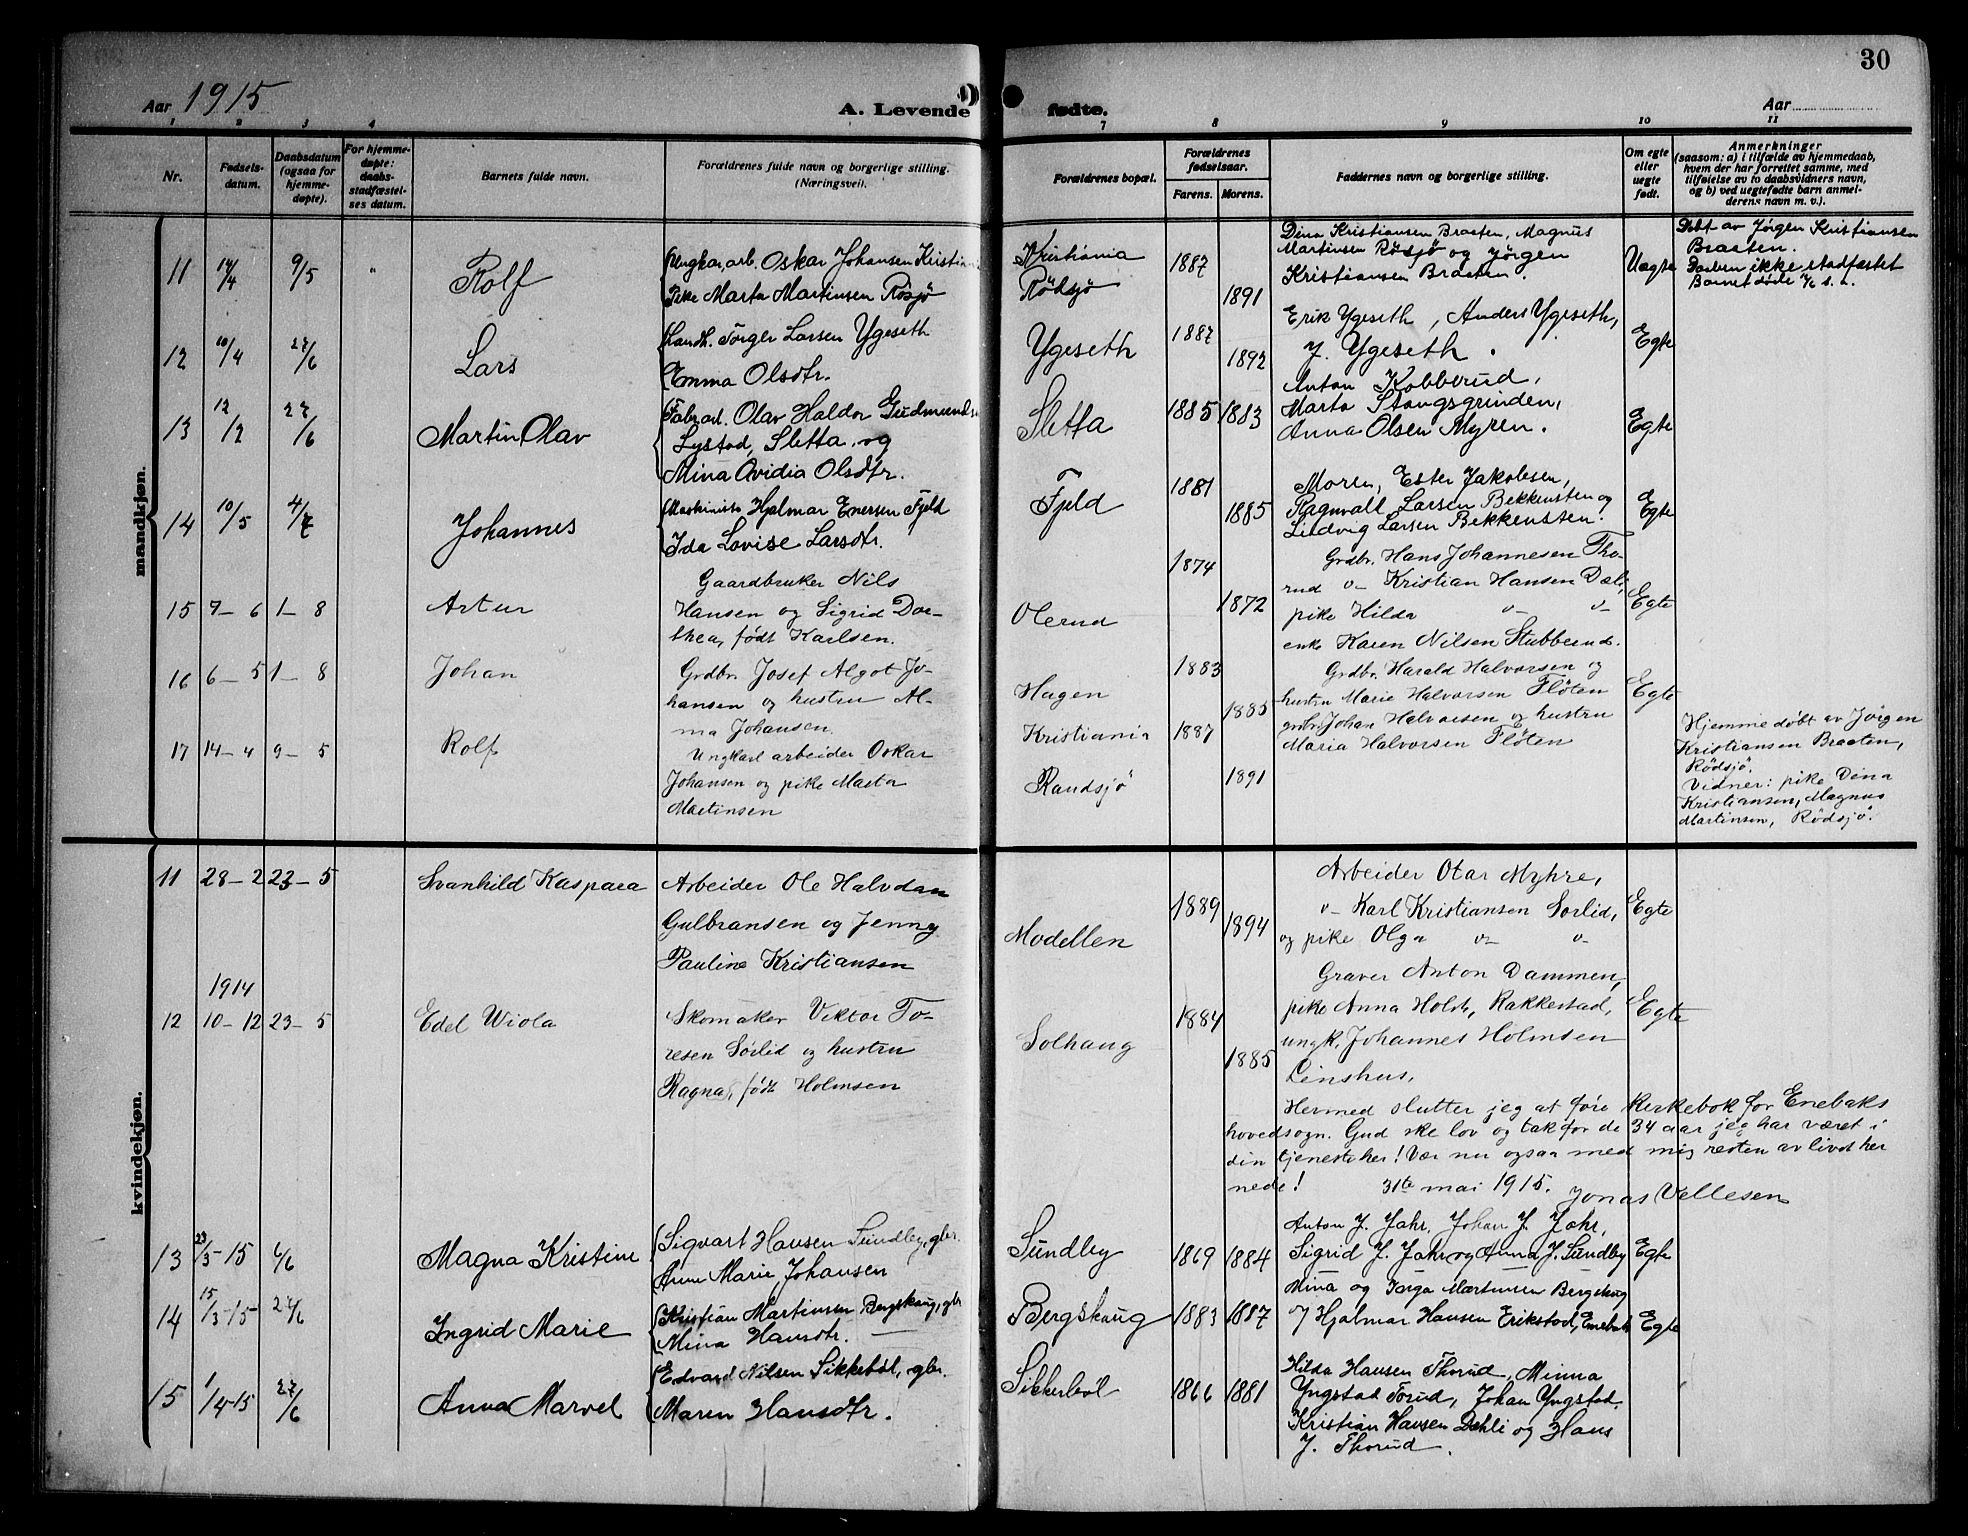 30
Aar 1915
A. Levende
fødte.
Aar
1 2 3 4
7 8 9 10 11
Nr.
Fødsels-
datum.
Daabsdatum
(ogsaa for
hjemme-
døpte).
For hjemme-
døpte:
daabs-
stadfæstel-
ses datum.
Barnets fulde navn.
Forældrenes fulde navn og borgerlige stilling.
(Næringsvei).
Forældrenes bopæl.
Forældrenes
fødselsaar.
Farens. Morens.
Faddernes navn og borgerlige stilling.
Om egte
eller
uegte
født.
Anmerkninger
(saasom: a) i tilfælde av hjemmedaab,
hvem der har forrettet samme, med
tilføielse av to daabsvidners navn,
og b) ved uegtefødte barn anmel-
derens navn m. v.).
mandkjøn.
11 14/4 9/5 " Rolf
Ungkar, arb. Oskar Johansen Kristian
Pike Marta Martinsen Røsjö
Kristiania
Rödsjø
1887
1891
Dina Kristiansen Braaten, Magnus
Martinsen Rösjö og Jörgen
Kristiansen Braaten.
Uegte
Døbt av Jørgen Kristiansen
Braaten.
Daaben ikke stadfæstet
Barnet døde 7/6 s. a.
12 10/4 27/6 Lars
Landh. Törger Larsen Ygeseth
Emma Olsdtr.
Ygeseth
1887
1892
Erik Ygeseth, Anders Ygeseth,
J. Ygeseth.
Egte
13 12/2 27/6 Martin Olav
Fabr.arb. Olav Haldor Gudmunds
Lystad, Sletta, og
Mina Ovidia Olsdtr.
Sletta
1885 1883
Anton Kobberud,
Marta Stangsgrinden,
Anna Olsen Myren.
Egte
14 10/5 4/7 Johannes
Maskinist Hjalmar Enersen Fjeld
Ida Lovise Larsdtr.
Fjeld
1881
1885
Moren, Ester Jakobsen,
Ragnvall Larsen Bekkensten og
Ludvig Larsen Bekkensten.
Egte
15 7-6 1-8 Artur
Gaardbruker Nils
Hansen og Sigrid Dor-
thea, født Karlsen.
Olerud
1874
1872
Grdbr. Hans Johannesen Tho-
rud v- Kristian Hansen Dæli,
pike Hilda v- v-
enke Karen Nilsen Stubberud.
Egte
16 6-5 1-8 Johan
Grdbr. Josef Algot Jo-
hansen og hustru Al-
ma Johansen.
Hagen
1883
1885
Grdbr. Harald Halvorsen og
hustru Marie Halvorsen Flöten
grdbr. Johan Halvorsen og hustru
Maria Halvorsen Flöten
Egte
17 14-4 9-5 Rolf
Ungkarl arbeider Oskar
Johansen og pike Marta
Martinsen
Kristiania
Randsjö
1887
1891
Hjemme döbt av Jörgen
Kristiansen Braaten,
Rödsjö.
Vidner: pike Dina
Kristiansen, Magnus
Martinsen, Rödsjö.
kvindekjøn.
11 28-2 23-5 Svanhild Kaspara
Arbeider Ole Halvdan
Gulbransen og Jenny
Pauline Kristiansen
Modellen
1889
1894
Arbeider Otar Myhre,
v- Karl Kristiansen Sorlid,
og pike Olga v- v-
Egte
1914
12 10-12 23-5 Edel Wiola
Skomaker Viktor To-
resen Sörlid og hustru
Ragna, födt Holmsen
Solhaug
1884
1885
Graver Anton Dammen,
pike Anna Holst, Rakkestad,
ungk. Johannes Holmsen
Linshus,
Egte
Hermed slutter jeg at före kirkebok for Enebaks
hovedsogn. Gud ske lov og tak for de 34 aar jeg har været i
din tjeneste her! Vær nu ogsaa med mig resten av livet her
nede! 31te mai 1915. Jonas Vellesen
13 23/3-15 6/6 Magna Kristine
Sigvart Hansen Sundby, gbr.
Anne Marie Johansen
Sundby
1869 1884
Anton J. Jahr, Johan J. Jahr,
Sigrid J. Jahr og Anna J. Sundby
Egte
14 15/3-15 27/6 Ingrid Marie
Kristian Martinsen Bergskaug, gbr
Mina Hansdtr.
Bergskaug
1883 1887
Mina og Inga Martinsen Bergskaug
og Hjalmar Hansen Erikstad, Enebak
Egte
15 1/4-15 27/6 Anna Marvel
Edvard Nilsen Sikkeböl, gbr.
Maren Hansdtr.
Sikkeböl
1866 1881
Hilda Hansen Thorud, Minna
Yngstad Torud, Johan Yngstad,
Kristian Hansen Dehli og Hans
J. Thorud.